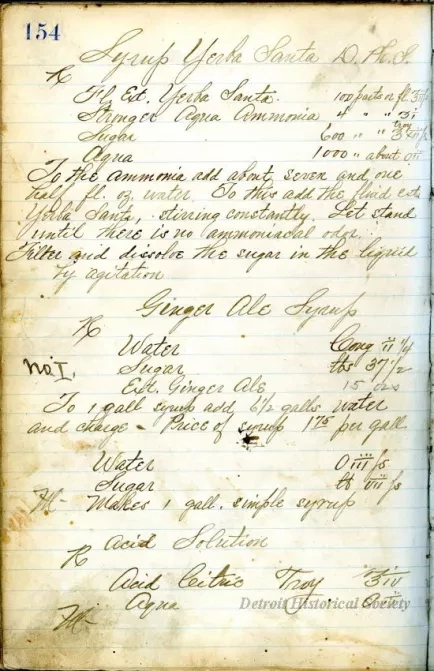 154
Syrup Yerba Santa D. Ph. S.
℞
Fl. Ext. Yerba Santa. 100 parts or fl ℥
Stronger Aqua Ammonia 4 " " ʒi
Sugar 600 " "
Aqua 1000 " about
To the Ammonia add about seven and one
half fl. oz water. To this add the fluid ext
Yerba Santa, stirring constantly. Let stand
until there is no ammoniacal odor.
Filter and dissolve the sugar in the liquid
by agitation
Ginger Ale Syrup
℞
Water Cong ii 1/4
No I. Sugar lbs 37 1/2
Ext. Ginger Ale 15 ozs
To 1 gall syrup add 6 1/2 galls water
and charge - Price of syrup 1 75 per gall
Water O iii fs
Sugar lb vii fs
M- Makes 1 gall. simple syrup
Acid Solution
℞
Acid Citric Troy ℥iv
Aqua
M-
Detroit Historical Society